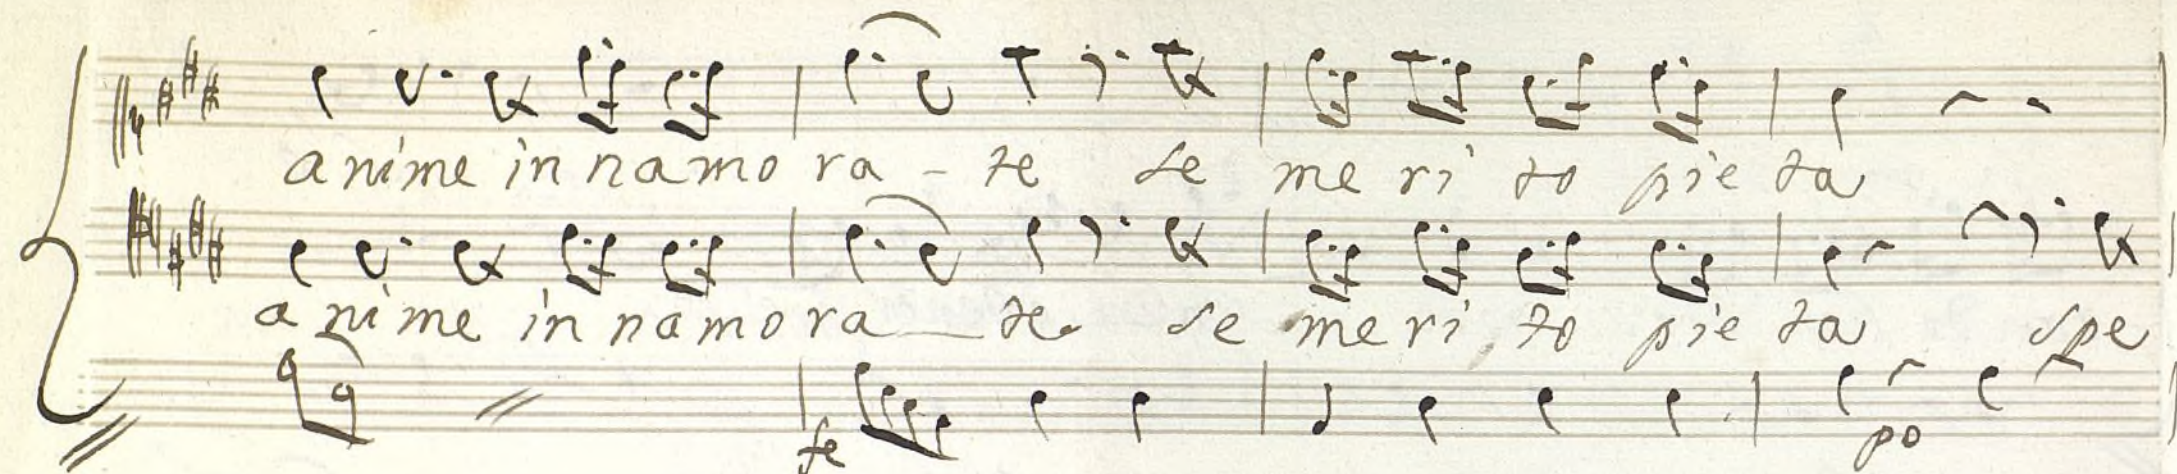 anime in namo ra - te se me ri to pie ta
anime in namo ra - te. se me ri to pie ta spe
fe po